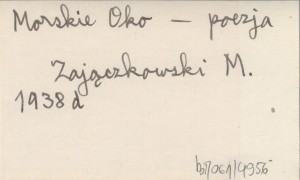 Morskie Oko — poezja
Zajączkowski M.
1938 d